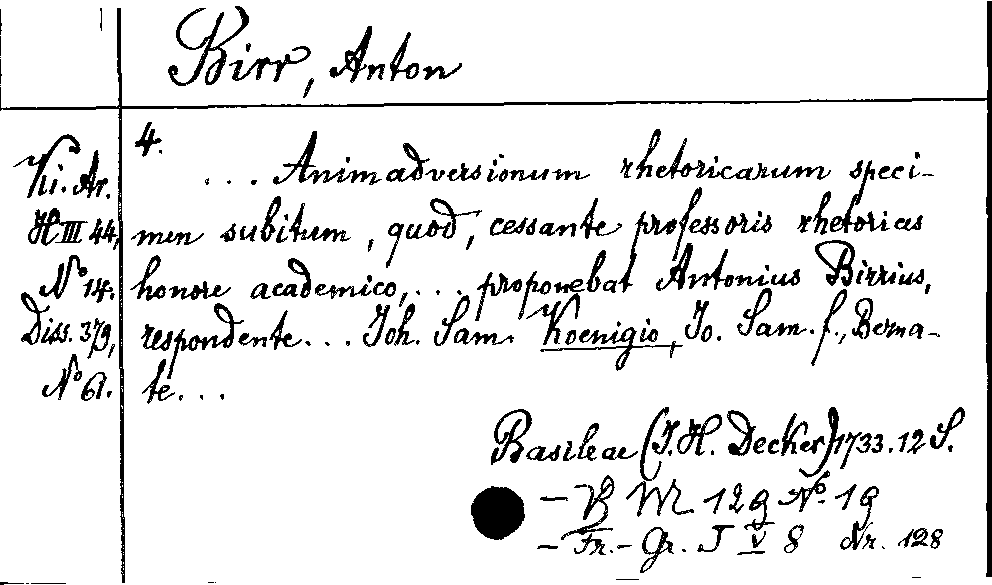 Birr, Anton
4.
Ki. Ar.
H III 44,
No 14.
Diss. 379,
No 61.
... Animadversionum rhetoricarum speci-
men subitum, quod, cessante professoris rhetorices
honore academico, ... proponebat Antonius Birrius,
respondente ... Joh. Sam. Koenigio, Jo. Sam. f., Berna-
te ...
Basileae (J. H. Decker) 1733. 12 S.
- B M 129 No. 19
- Fr.-Gr. J V 8 Nr. 128